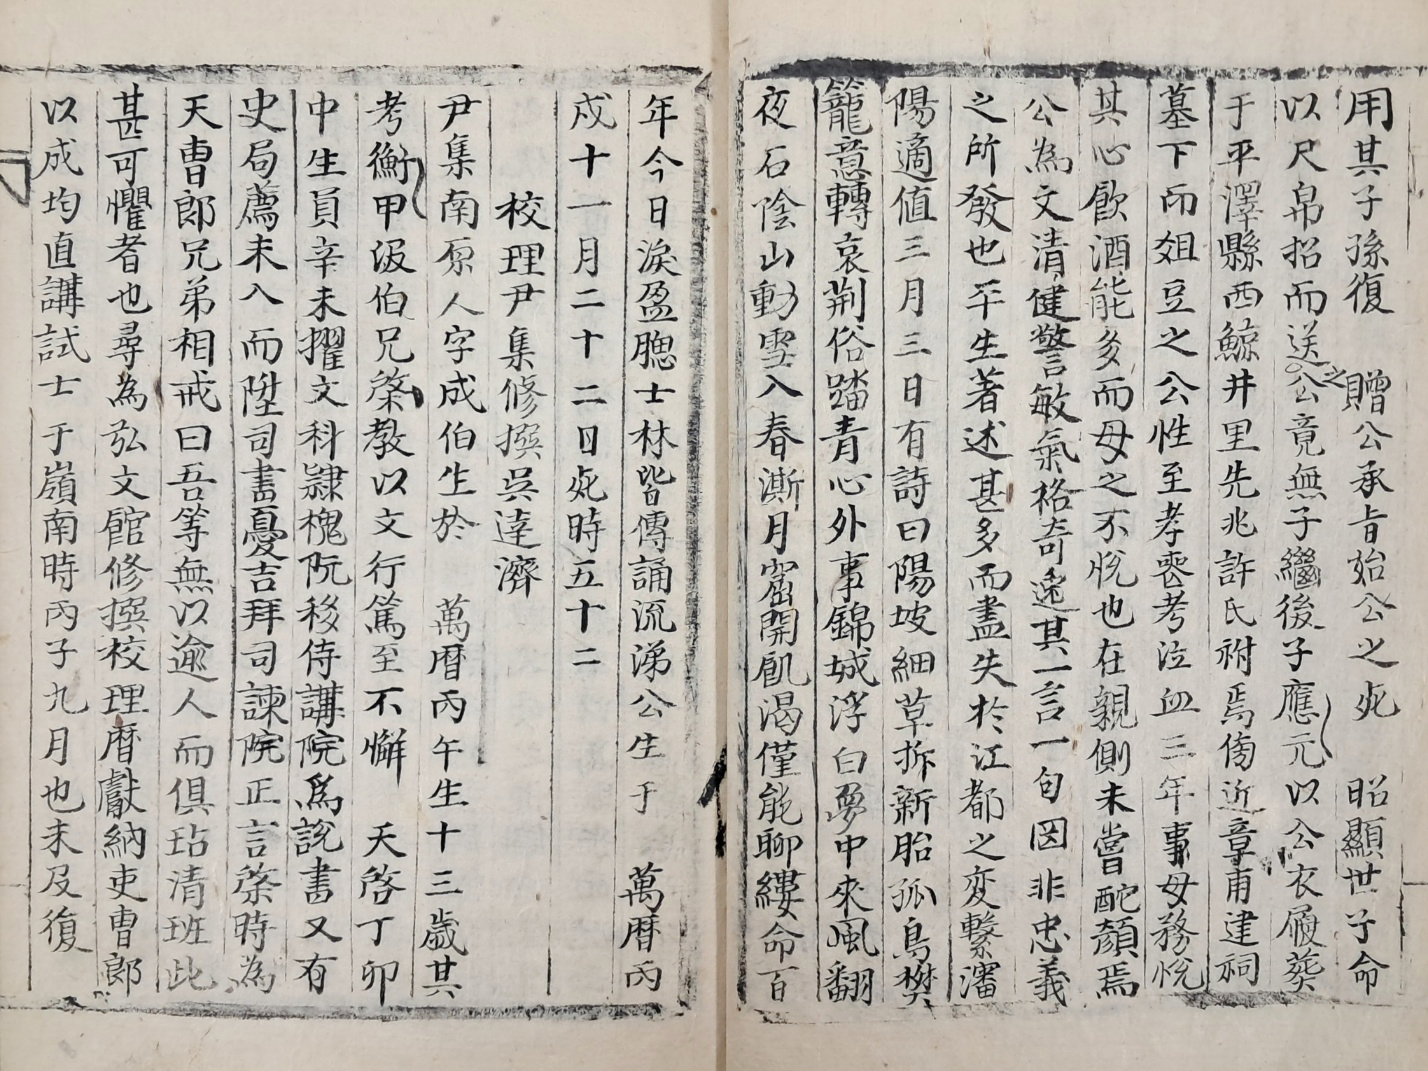 用其子孫復　贈公承旨始公之死　昭顯世子命
以尺帛招而送之公竟無子繼後子應元以公衣履葬
于平澤縣西鯨井里先兆許氏祔焉傍近章甫建祠
墓下而俎豆之公性至孝喪考泣血三年事母務悅
其心飮酒能多而母之不悅也在親側未嘗酡顏焉
公為文清健警敏氣格奇逸其一言一句罔非忠義
之所發也平生著述甚多而盡失於江都之変繫瀋
陽適値三月三日有詩曰陽坡細草拆新胎孤鳥樊
籠意轉哀荆俗踏青心外事錦城浮白夢中來風翻
夜石陰山動雪入春澌月窟開飢渴僅能聊縷命百
年今日淚盈腮士林皆傳誦流涕公生于　萬曆丙
戌十一月二十二日死時五十二
校理尹集修撰吳達濟
尹集南原人字成伯生於　萬曆丙午生十三歲其
考衡甲沒伯兄棨教以文行篤至不懈　天啓丁卯
中生員辛未擢文科隷槐院移侍講院爲說書又有
史局薦未入而陞司書憂吉拜司諫院正言棨時為
天曹郎兄弟相戒曰吾等無以逾人而俱玷清班此
甚可懼者也尋為弘文館修撰校理曆獻納吏曹郎
以成均直講試士于嶺南時丙子九月也未及復